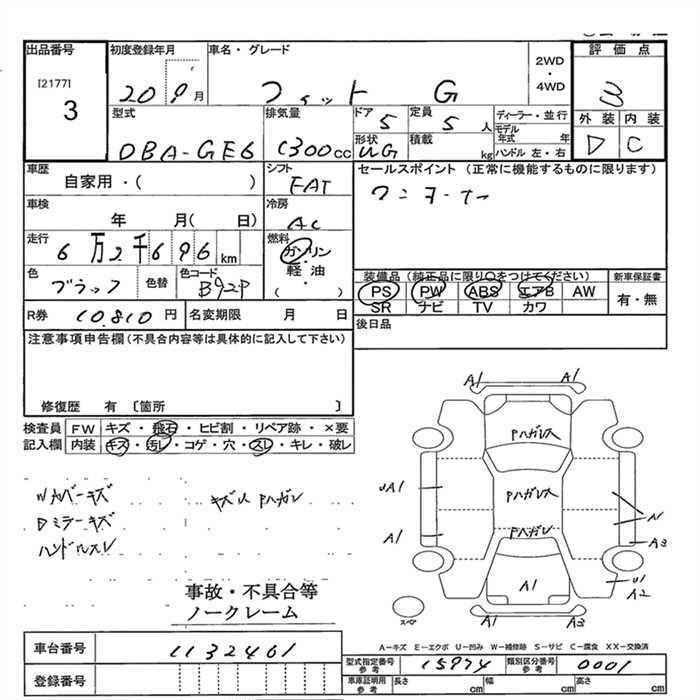 出品番号 初度登録年月 車名・グレード 2WD・4WD 評価点
[2177] 3 20 9月 フィット G 3
型式 排気量 ドア 5 定員 5 人 ディーラー・並行 外装 内装
DBA-GE6 1300cc 形状 UG 積載 kg モデル年式 年 ハンドル 左・右 D C
車歴 シフト セールスポイント(正常に機能するものに限ります)
自家用・( ) FAT ワンオーナー
車検 冷房
年 月( 日) AC
走行 燃料
6万2千696km ガソリン・軽油・( )
色 色替 色コード 装備品(純正品に限り○をつけてください) 新車保証書
ブラック B92P PS PW ABS エアB AW 有・無
SR ナビ TV カワ
R券 10,810円 名変期限 月 日 後日品
注意事項申告欄(不具合内容等は具体的に記入して下さい)
修復歴 有〔箇所 〕
検査員 FW キズ・飛石・ヒビ割・リペア跡・×要
記入欄 内装 キズ・汚レ・コゲ・穴・スレ・キレ・破レ
A1 A1
Pハガレ
カバーキズ キズ Pハガレ UA1 Pハガレ
Dミラーキズ Pハガレ
ハンドルスレ A1 A3
A1 U1 A2
事故・不具合等
ノークレーム スペア A1 A3
A-キズ E-エクボ U-凹み W-補修跡 S-サビ C-腐食 XX-交換済
車台番号 1132461 型式指定番号 参考 15974 類別区分番号 参考 0001
登録番号 車庫証明用 参考 長さ cm 幅 cm 高さ cm